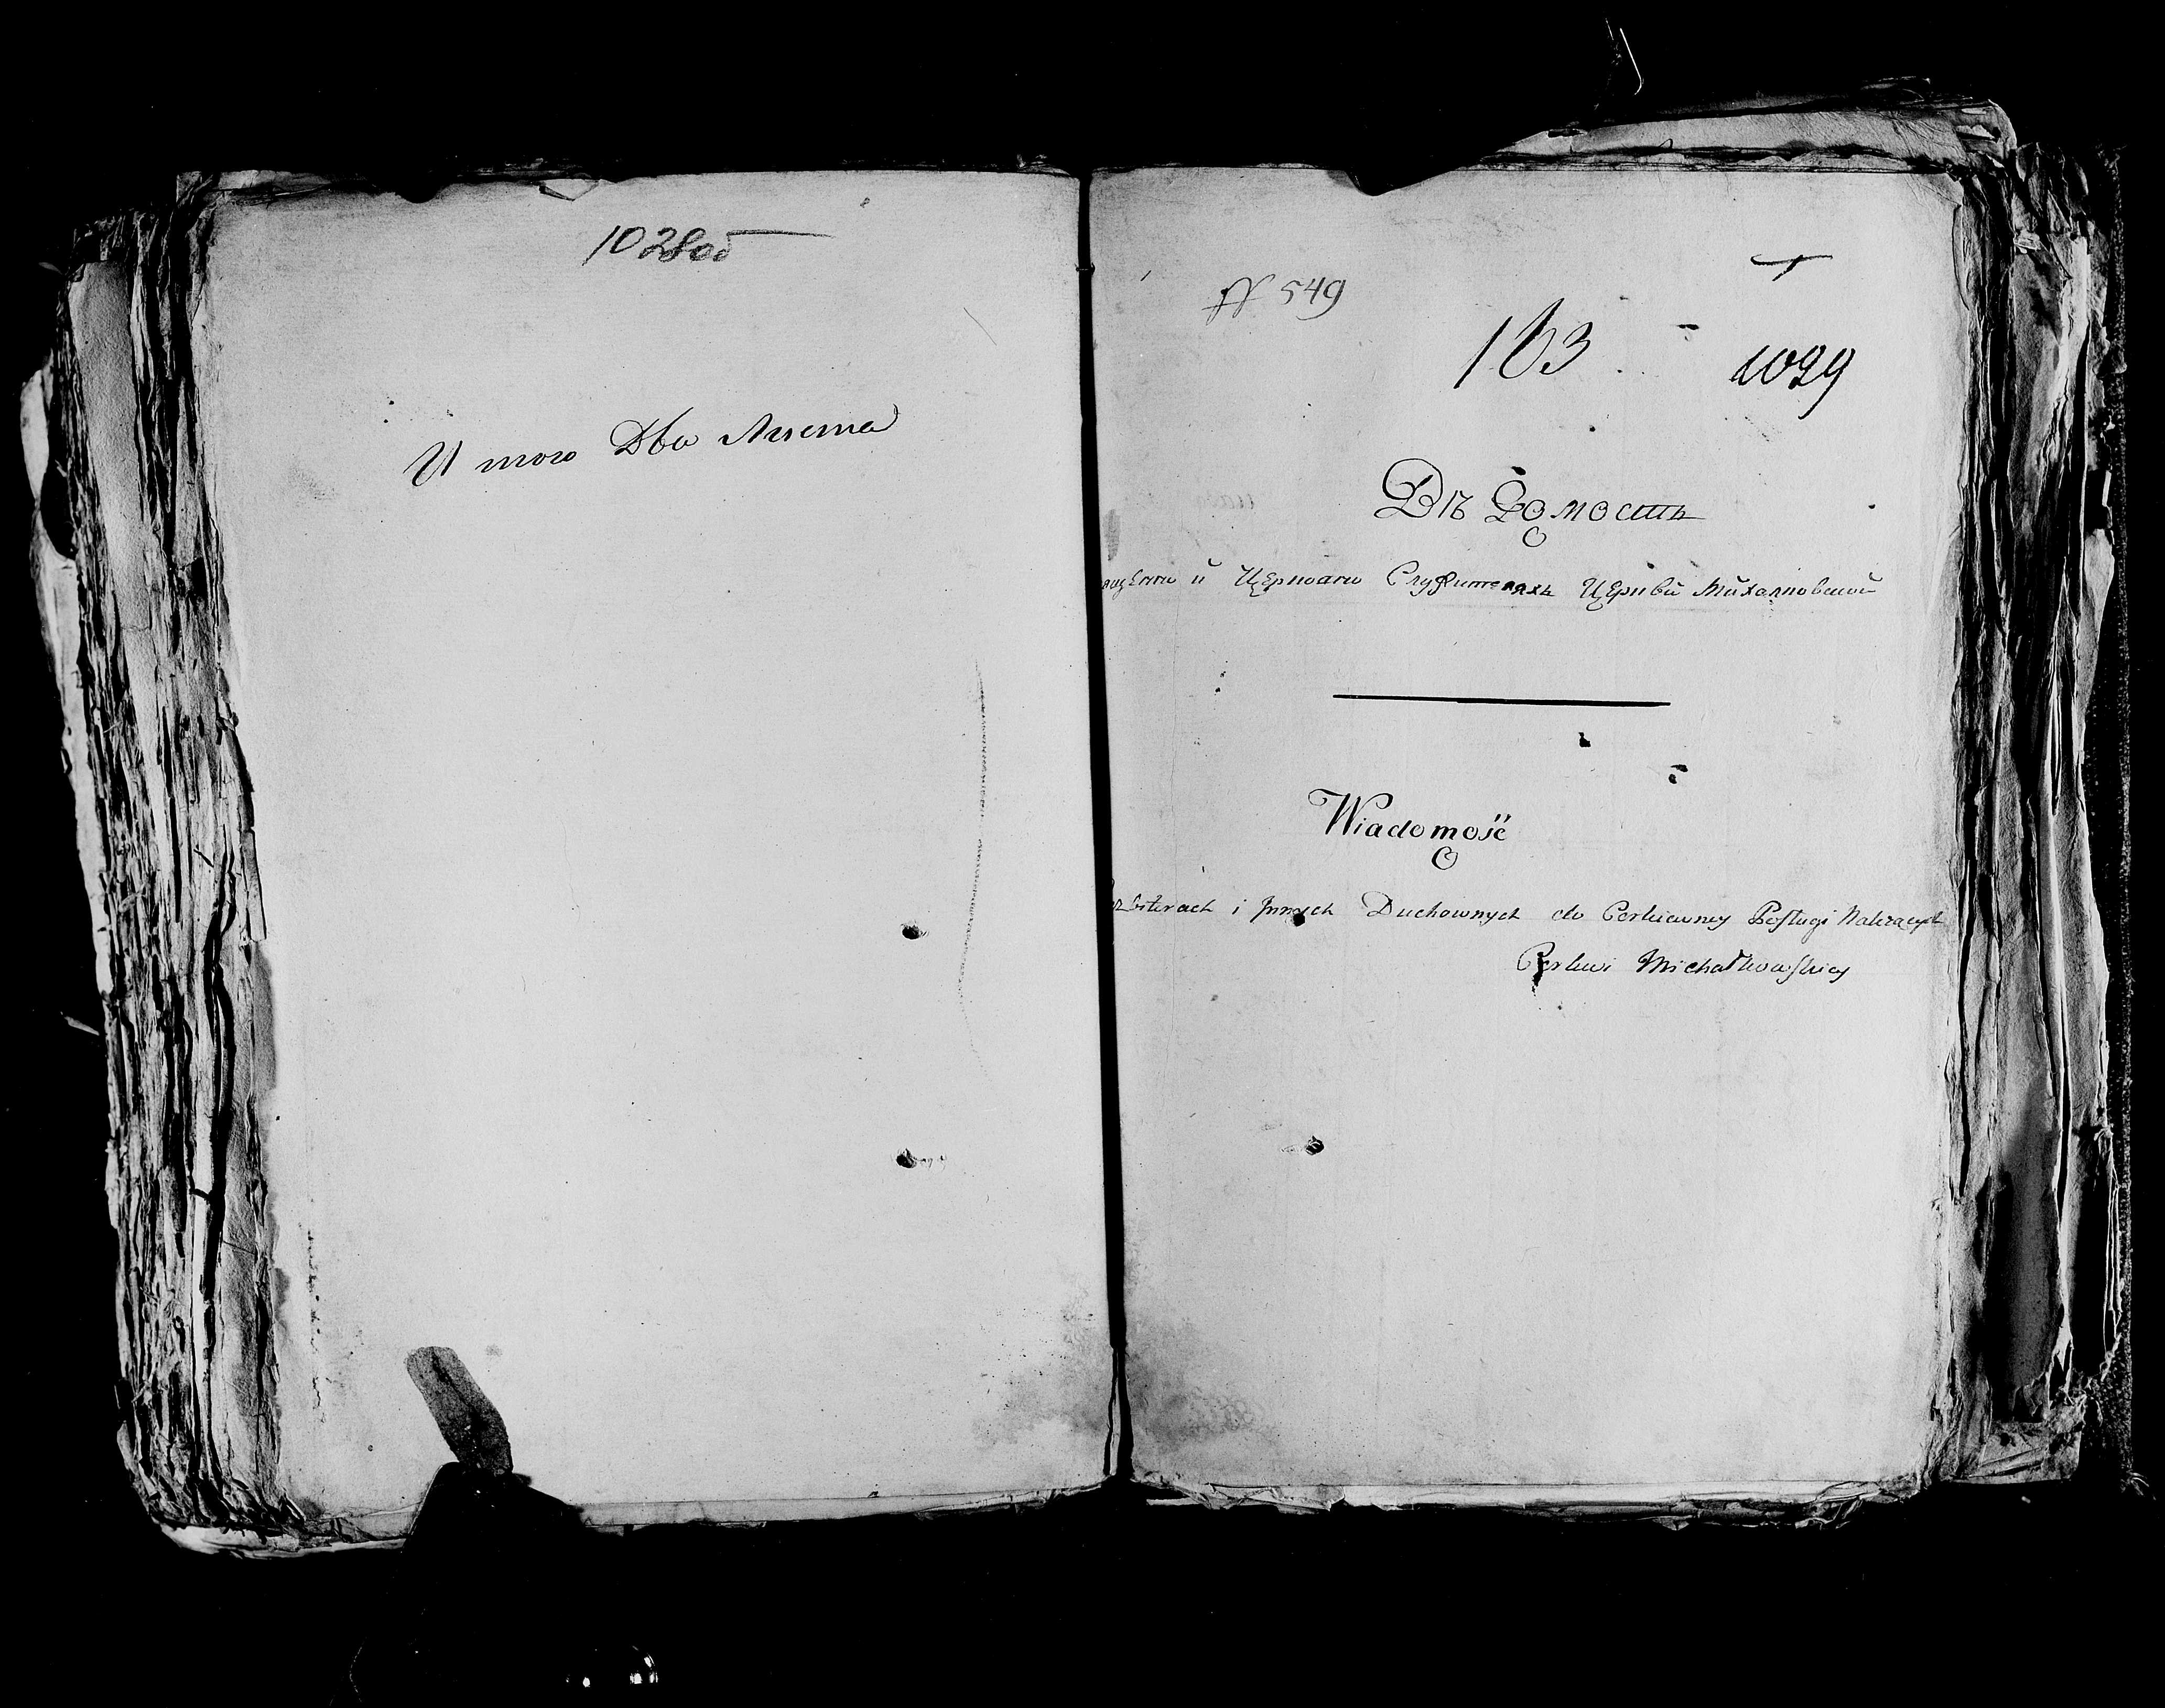 1028об
И того Два Листа
N 549
163
1029
Вѣдомость
ященно и Церковно Служителяхъ Церкви Михалковской
Wiadomość
zbiterach i Jnnych Duchownych do Cerkiewney Posługi Należących
Cerkwi Michałkowskiey